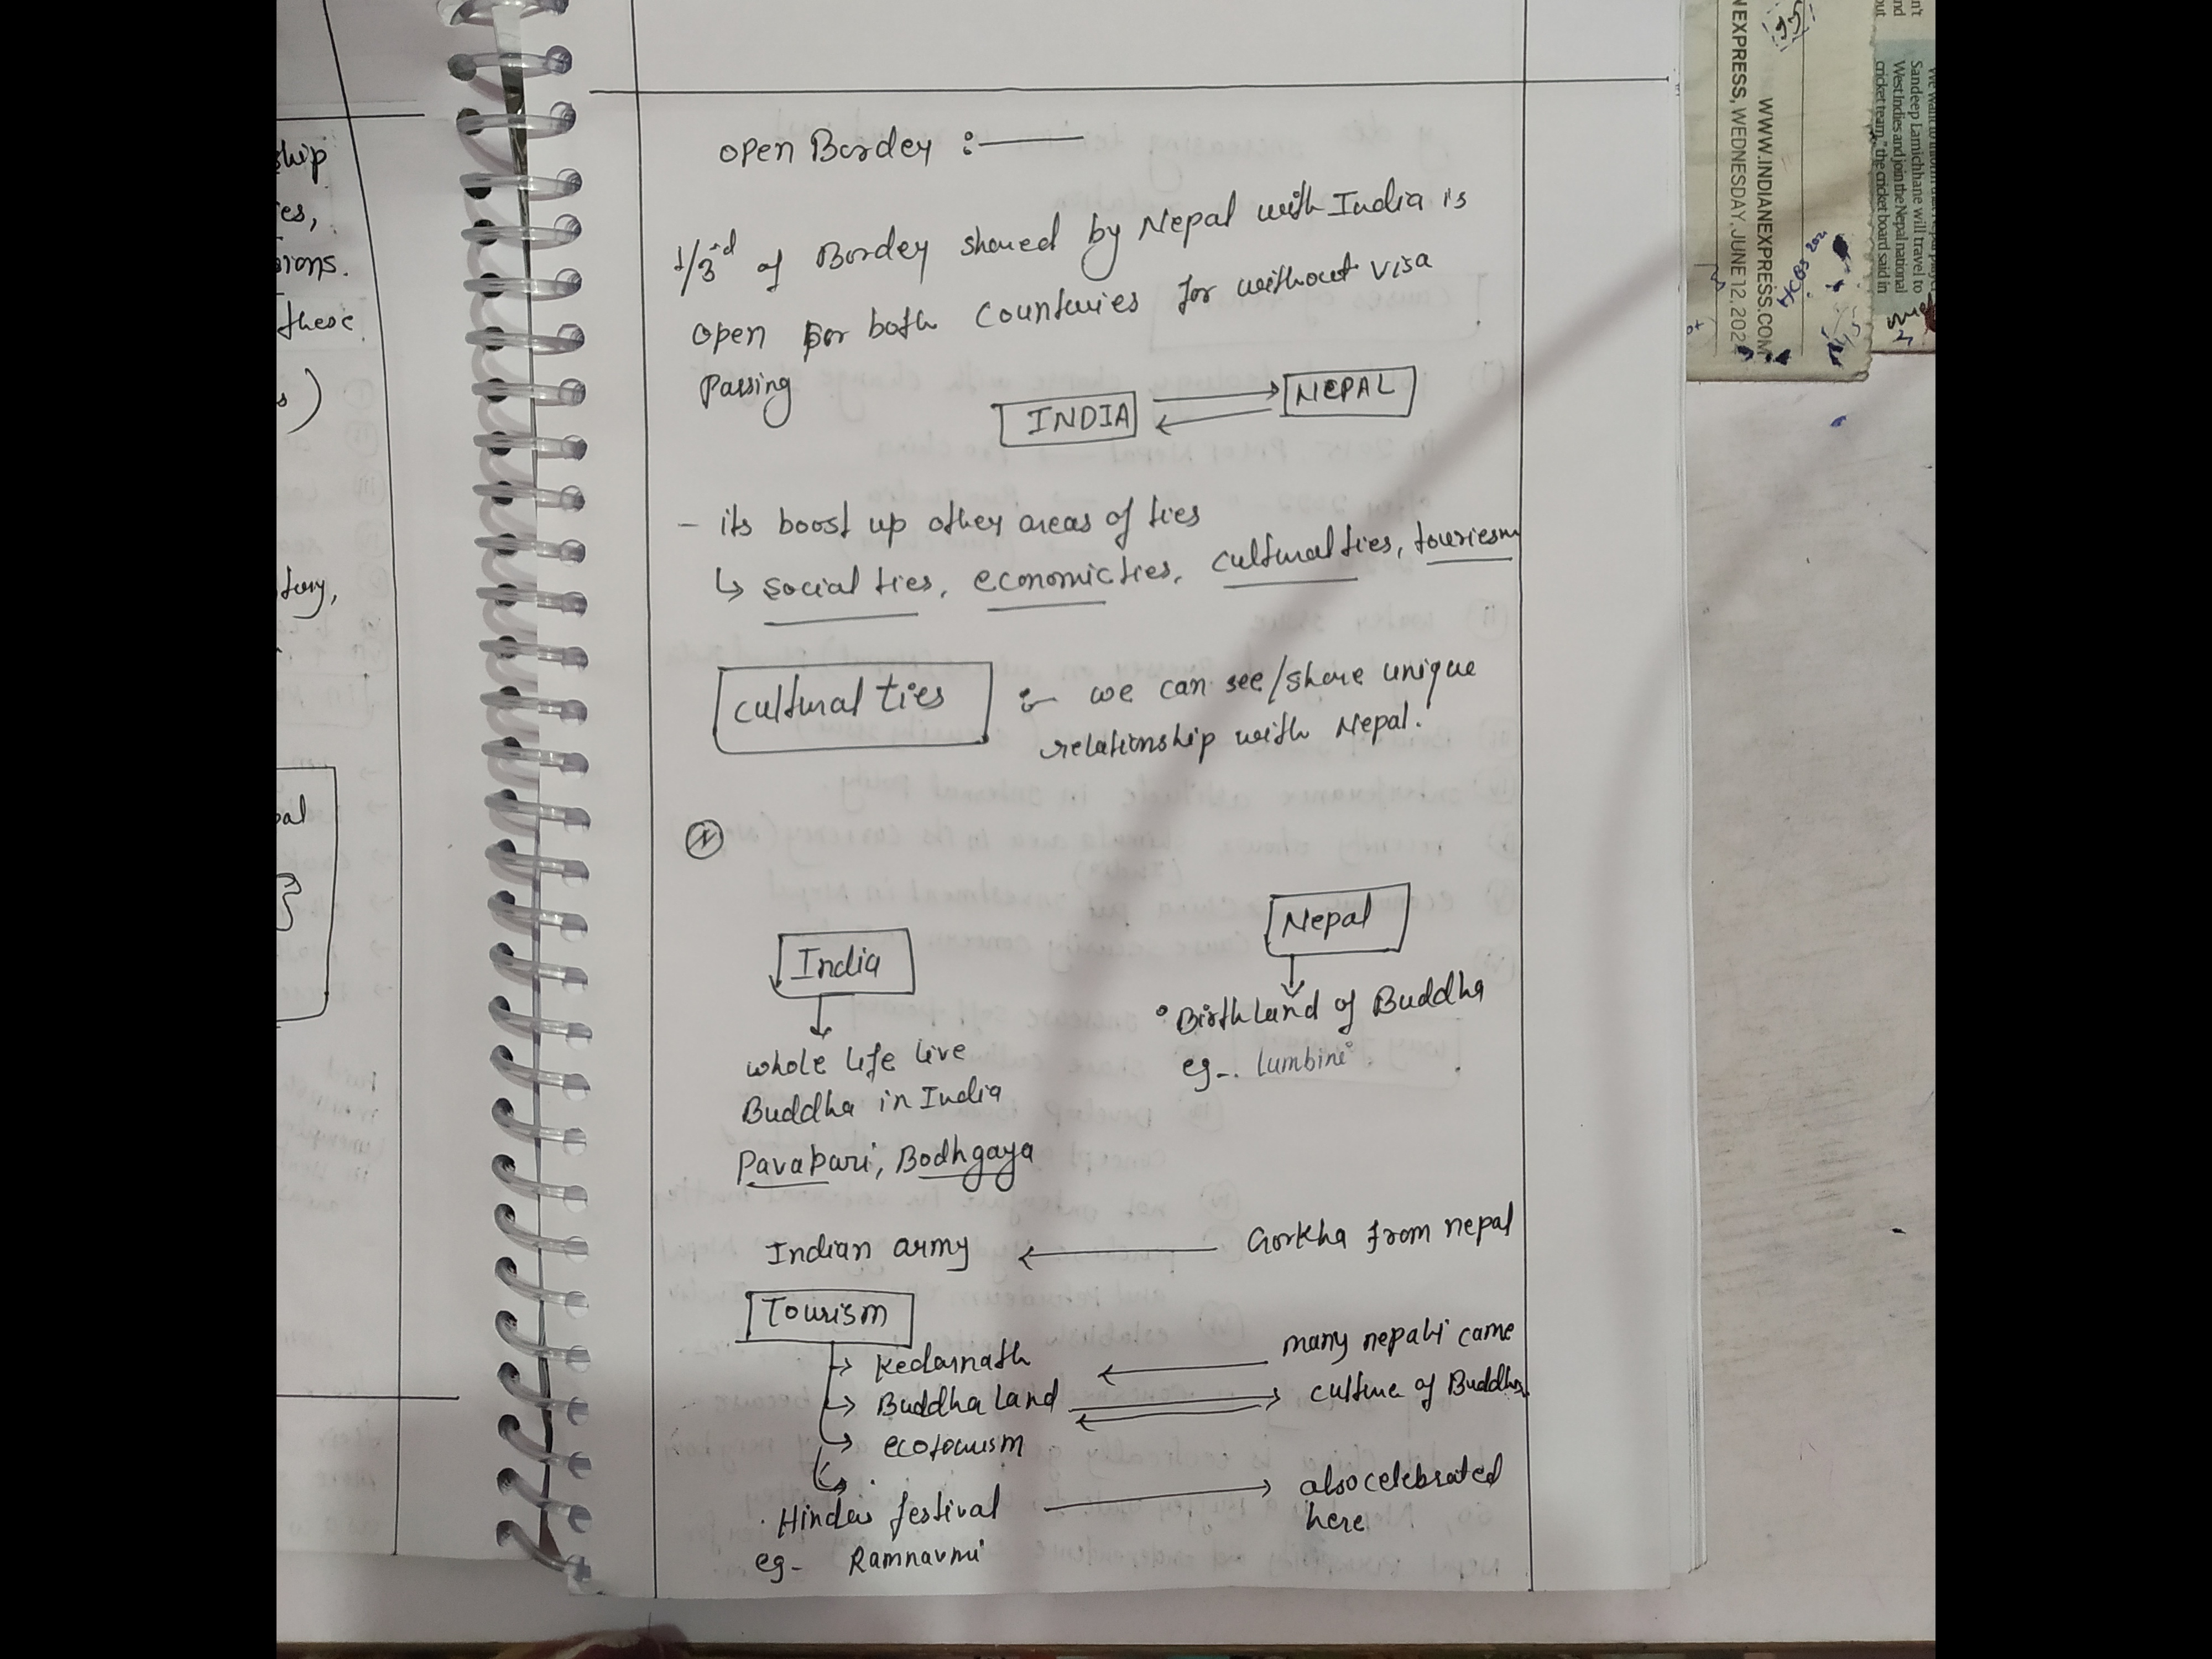 ship
es,
sions.
these
s)
tory,
pal
open Border :-
1/3rd of Border shared by Nepal with India is
open for both countries for without visa
Passing
INDIA
NEPAL
- its boost up other areas of ties
↳ social ties, economic ties, cultural ties, touriesm
cultural ties :- we can see/share unique
relationship with Nepal.
India
Nepal
whole life live
Buddha in India
Pavapuri, Bodhgaya
° Birth Land of Buddha
eg-. Lumbini
Indian army ← Gorkha from nepal
Tourism
→ Kedarnath ← many nepali came
→ Buddha Land culture of Buddha
→ ecotourism
Hindu festival → also celebrated
here
eg- Ramnavmi
N EXPRESS, WEDNESDAY, JUNE 12, 2024
WWW.INDIANEXPRESS.COM
n't
nd
out
Sandeep Lamichhane will travel to
West Indies and join the Nepal national
cricket team," the cricket board said in